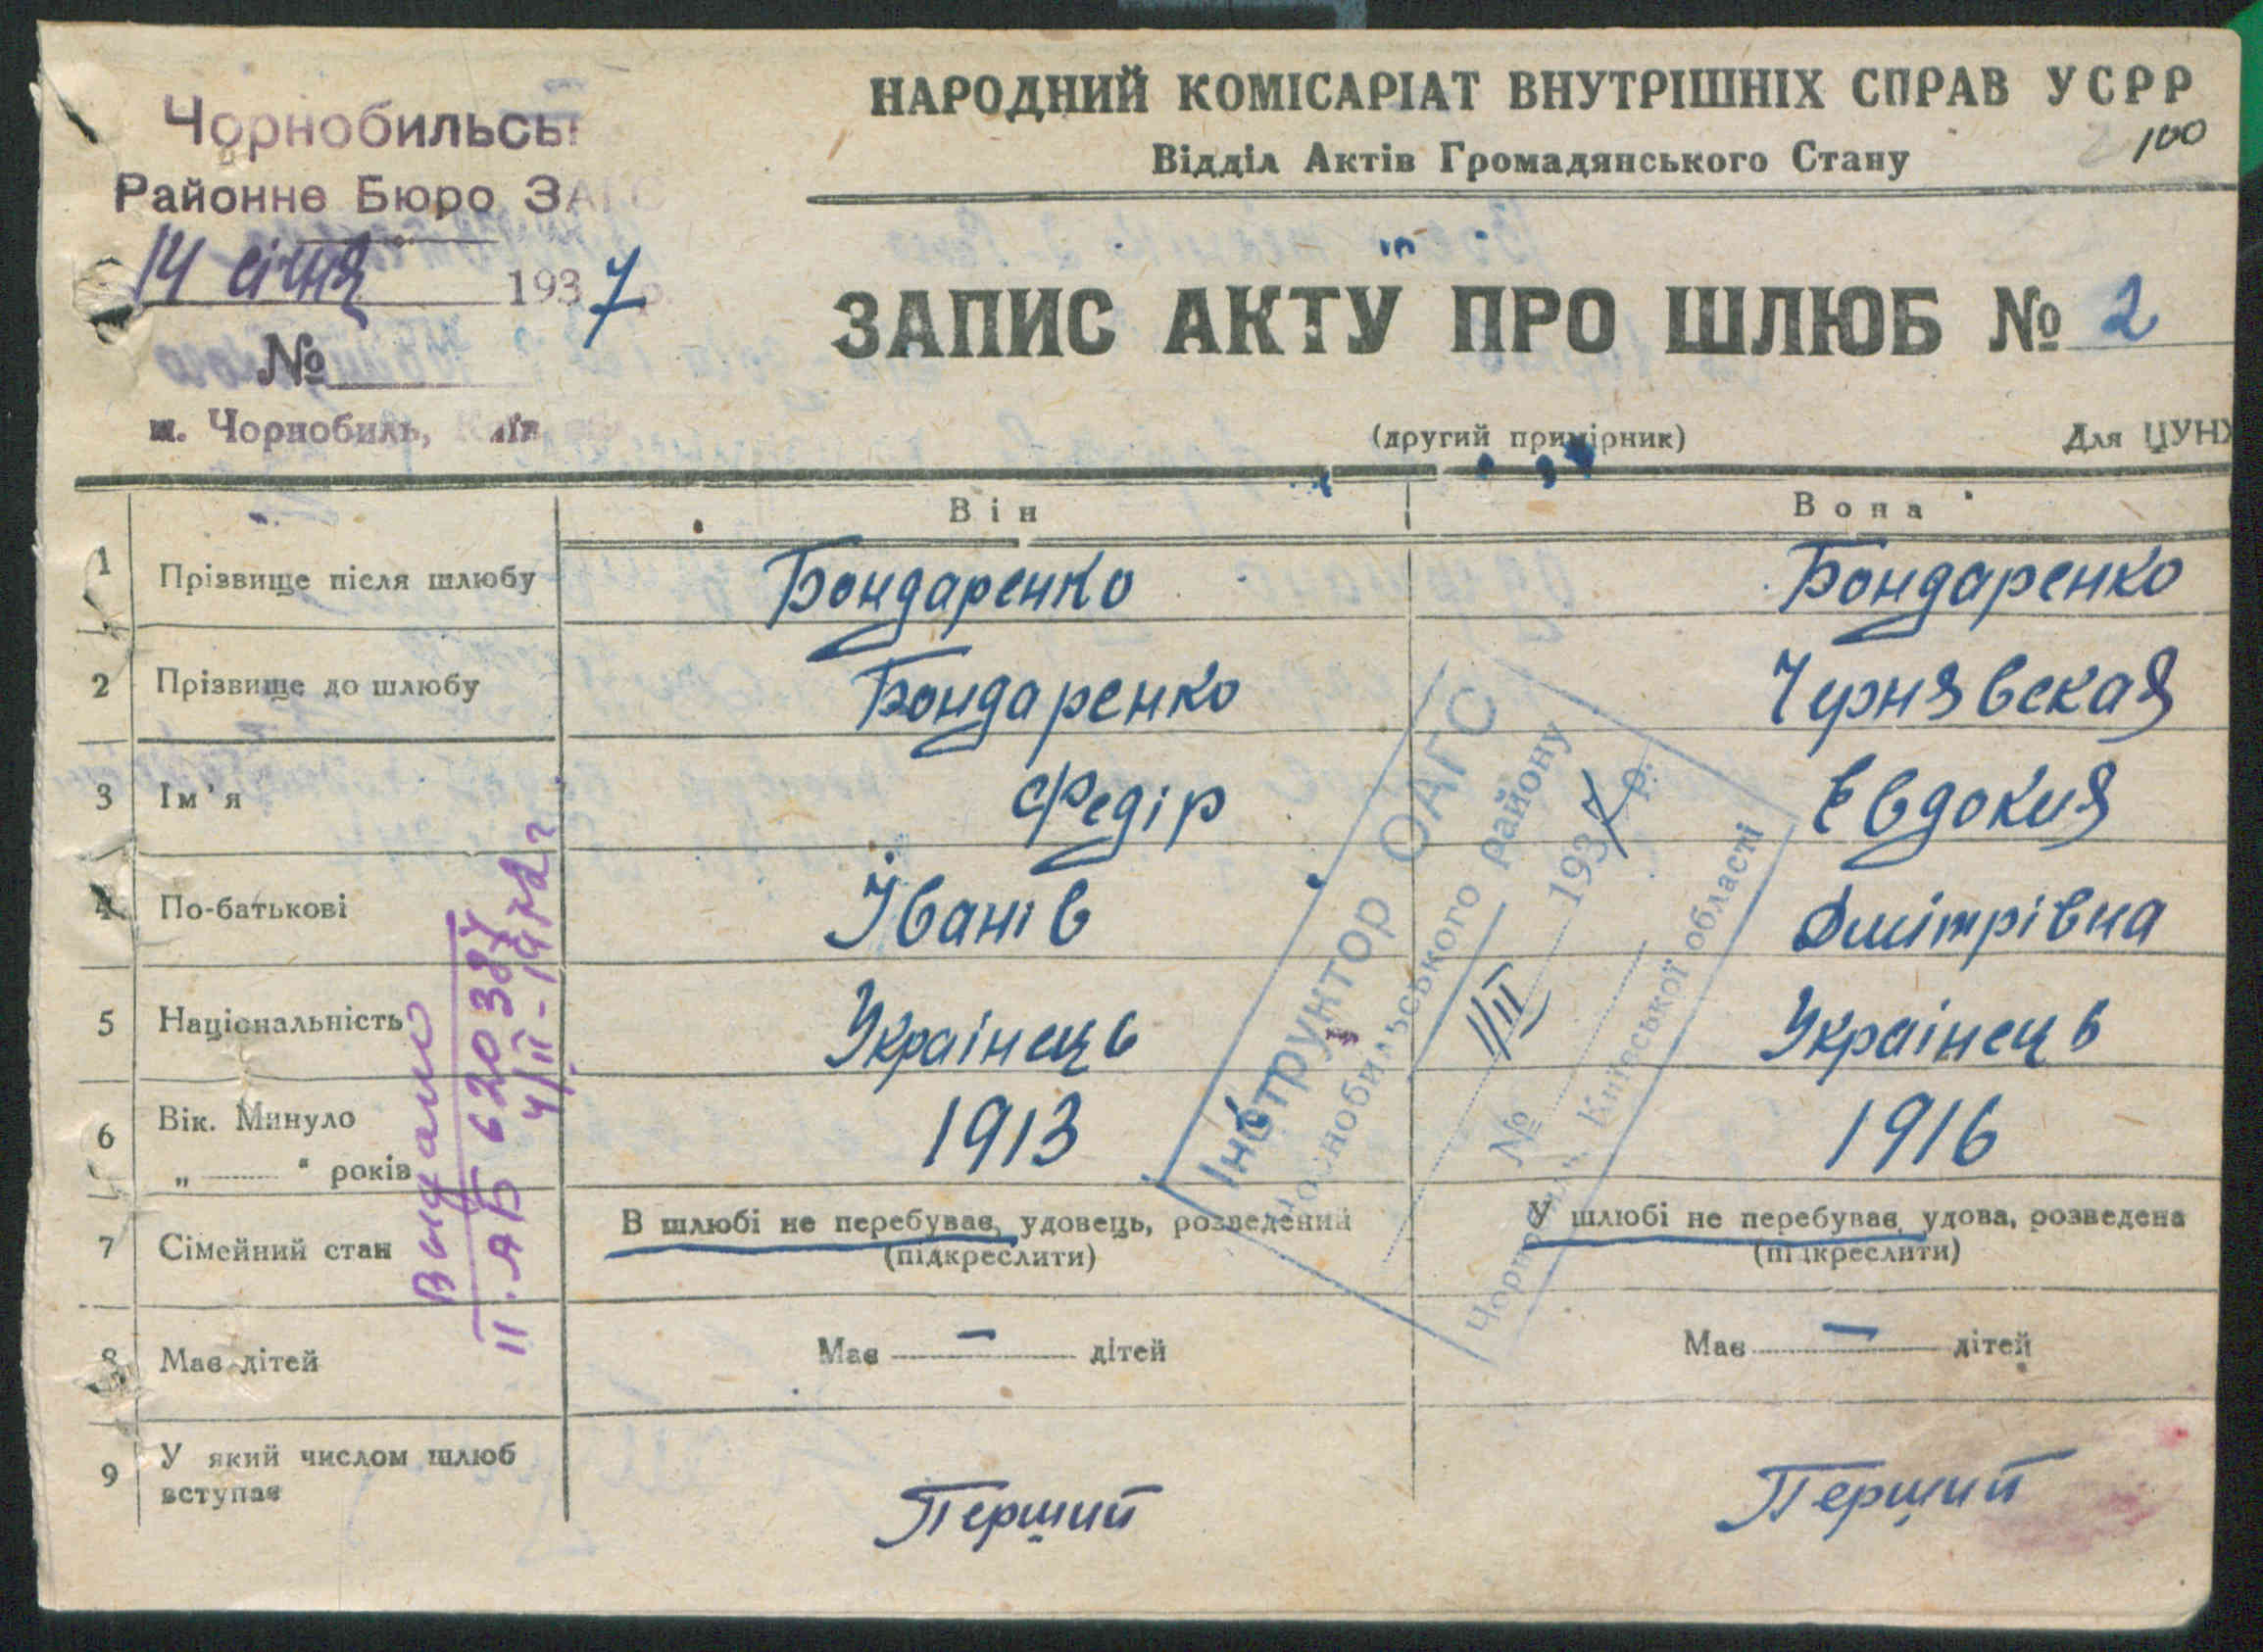 Чорнобильсь
Районне Бюро ЗАГС
14 січня 1937
№
м. Чорнобиль,
НАРОДНИЙ КОМІСАРІАТ ВНУТРІШНІХ СПРАВ УСРР
Відділ Актів Громадянського Стану
100
ЗАПИС АКТУ ПРО ШЛЮБ № 2
(другий примірник)
Для ЦУНХ
Він
Вона
1 Прізвище після шлюбу Бондаренко Бондаренко
2 Прізвище до шлюбу Бондаренко Чернявская
3 Ім'я Федір Евдокия
4 По-батькові Іванів Дмітрівна
5 Національність Українець Українець
6 Вік. Минуло 1913 1916
„ “ років
7 Сімейний стан В шлюбі не перебував, удовець, розведений У шлюбі не перебував, удова, розведена
(підкреслити) (підкреслити)
8 Має дітей Має — дітей Має — дітей
9 У який числом шлюб вступає Перший Перший
Видано
II. АБ 620384
4/II-1972г
Інструктор ОАГС
Чорнобильського району
1/II 1937 р.
№
Київської області